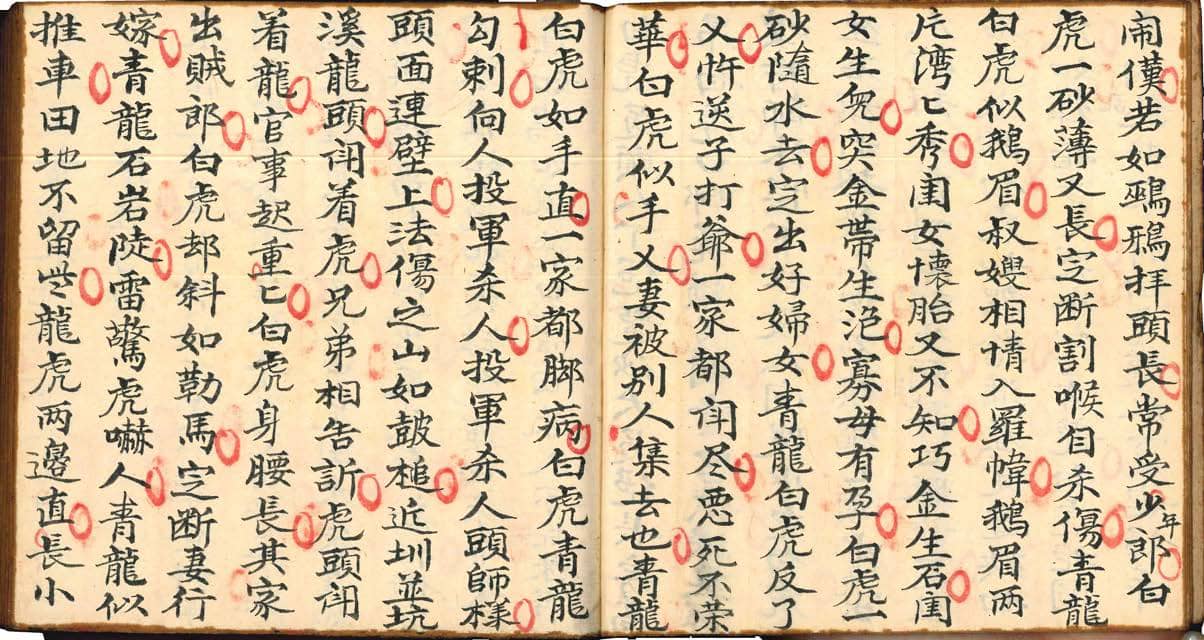 闹僙若如鵶鴉拜頭長常受少年郎白
虎一砂薄又長㝎断割喉自杀傷青龍
白虎似鵝眉叔嫂相情入羅幃鵝眉两
片湾匕秀闺女懷胎又不知巧金生石闺
女生皃突金帶生浥寡母有孕白虎一
砂隨水去㝎出好婦女青龍白虎反了
乂忤送子打爺一家都闬尽悪死不荣
華白虎似手乂妻被别人集去也青龍
白虎如手直一家都脚病白虎青龍
勾剌向人投軍杀人投軍杀人頭師樣
頭面連壁上法傷之山如鼓槌近圳並坑
溪龍頭闬着虎兄弟相告訴虎頭闬
着龍官事起重匕白虎身腰長其家
出賊郎白虎却斜如勒馬㝎断妻行
嫁青龍石岩陡雷驚虎嚇人青龍似
推車田地不留些龍虎两邉直長小